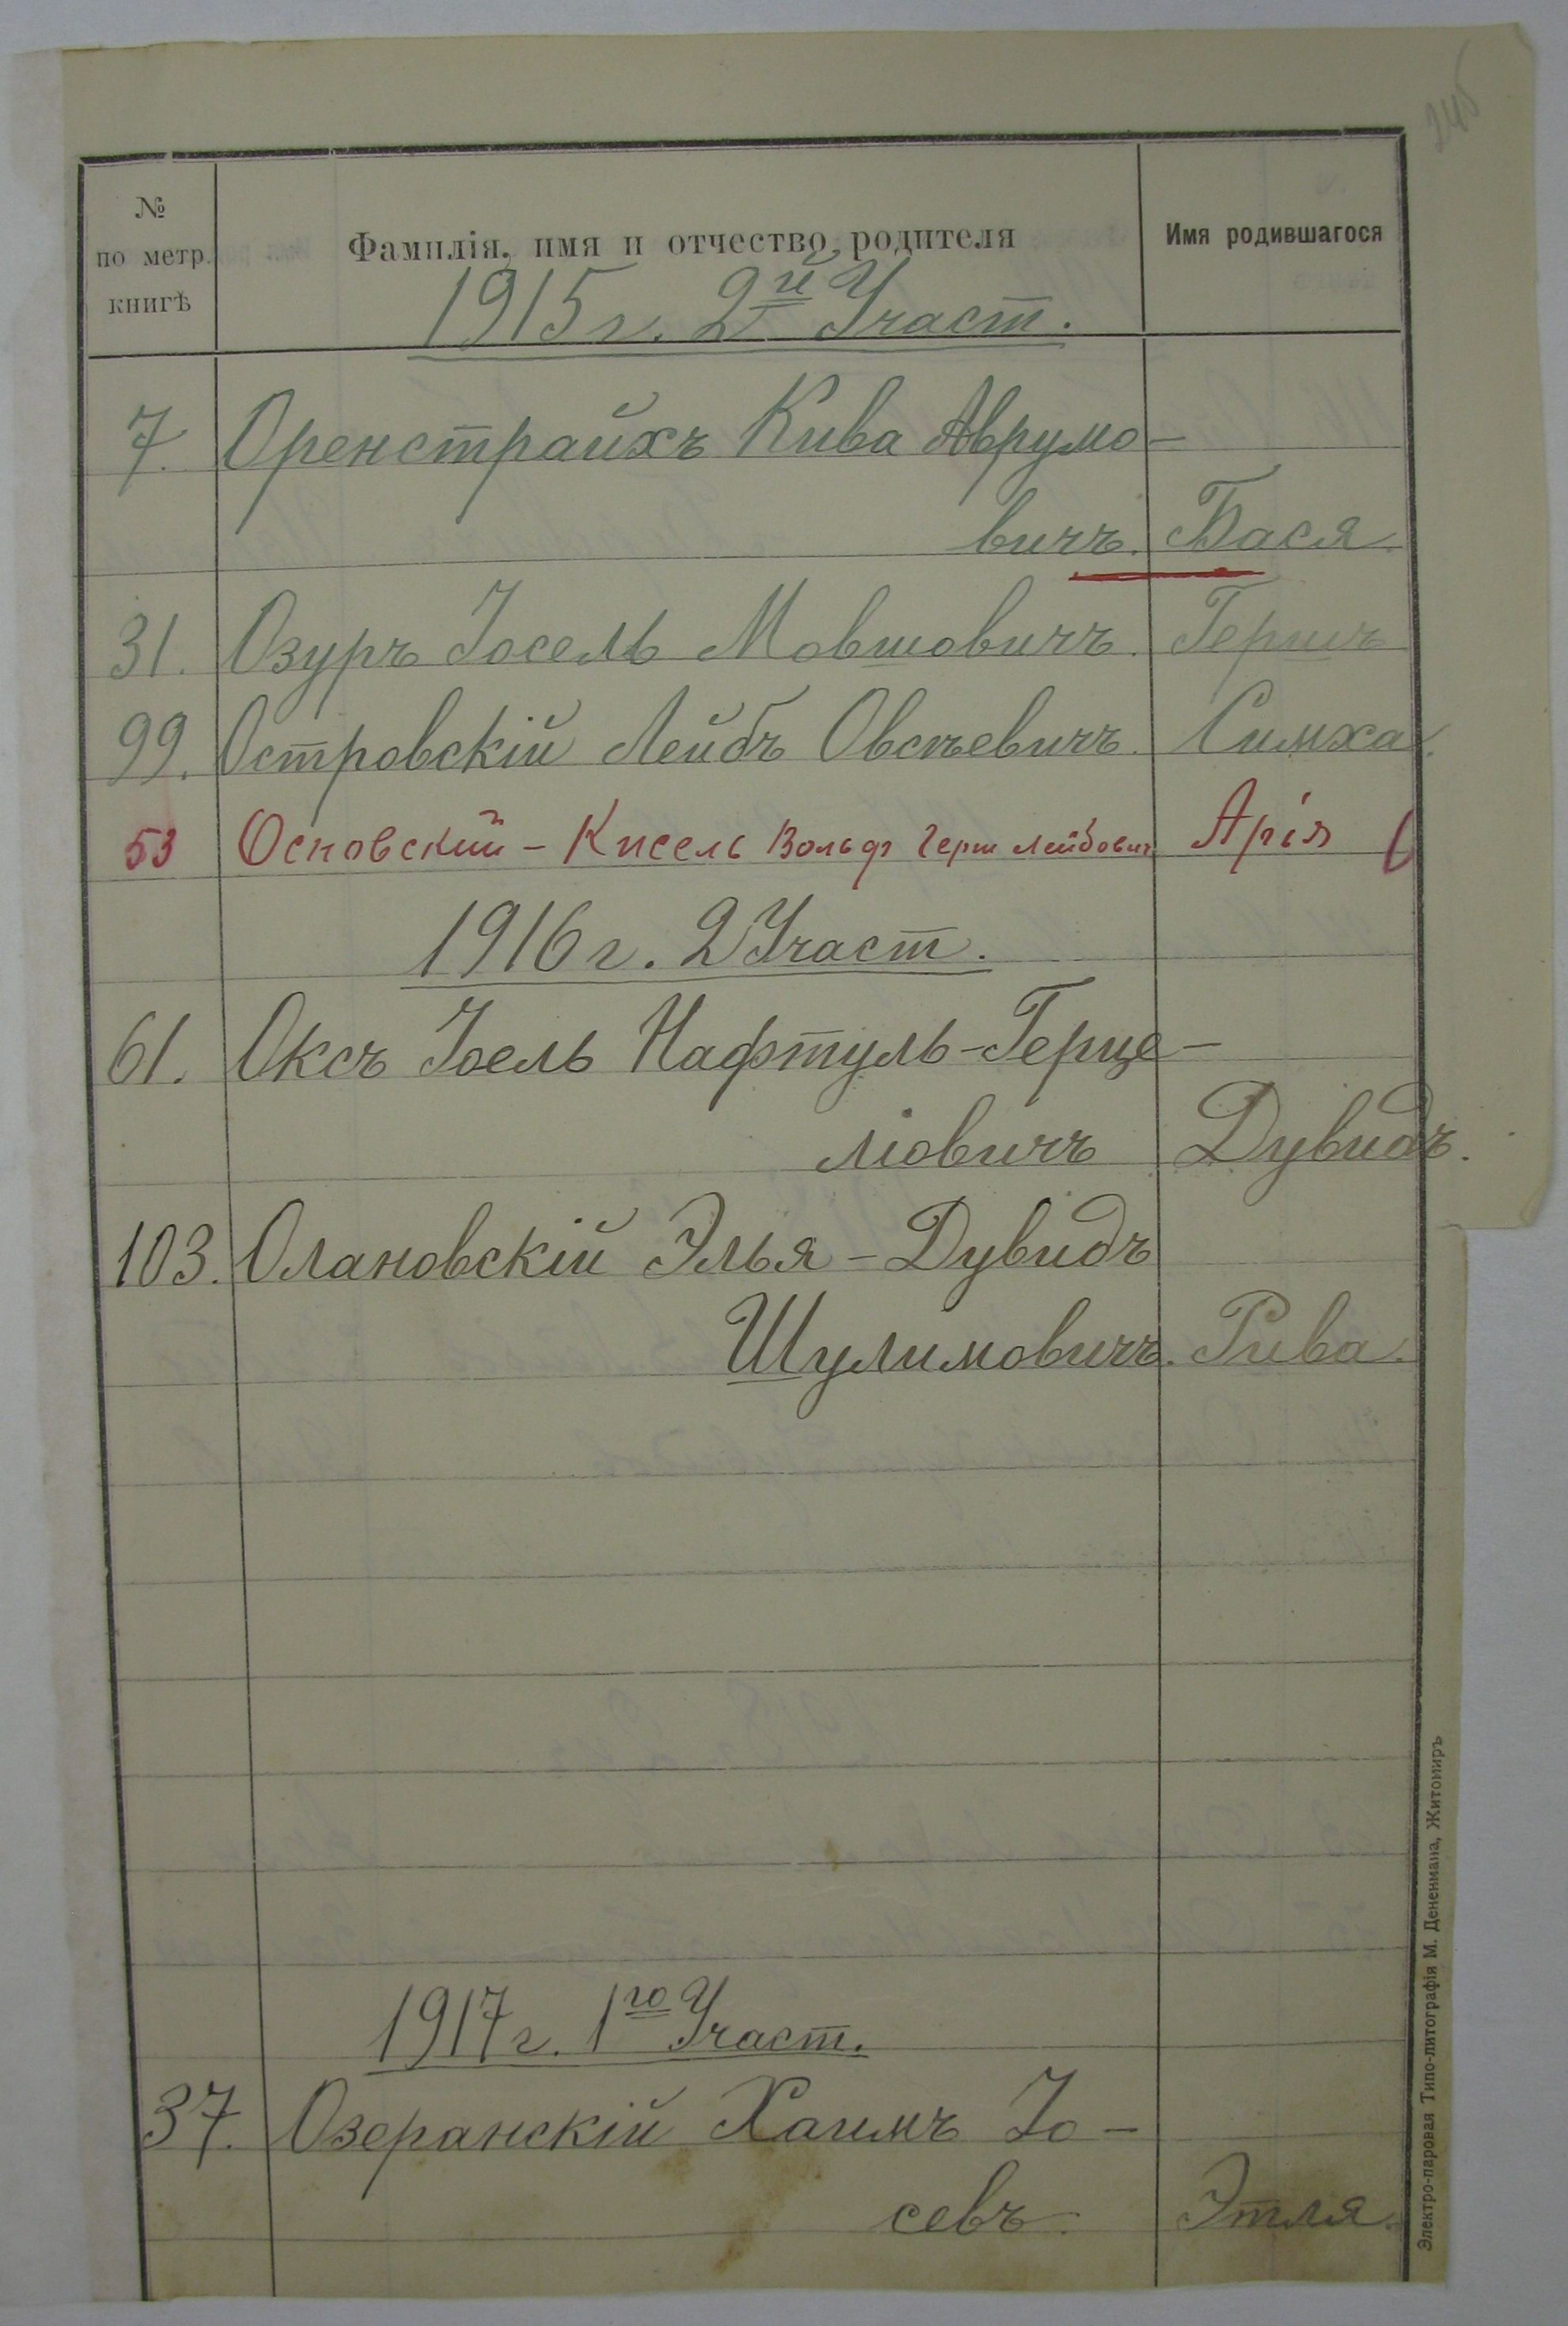 246
№ по метр. книгѣ
Фамилія, имя и отчество родителя
Имя родившагося
1915 г. 2й Участ.
7. Оренстрайхъ Кива Аврумо-
вичъ. Бася
31. Озуръ Іосель Мовшовичъ. Гершъ
99. Островскій Лейбъ Овсѣевичъ. Симха.
53 Основский - Кисель Вольф Герш Лейбович Арія
1916 г. 2 Участ.
61. Оксъ Іоель Нафтуль-Герце-
ліовичъ Дувидъ.
103. Олановскій Элья - Дувидъ
Шулимовичъ. Рива.
1917 г. 1го Участ.
37. Озеранскій Хаимъ Іо-
севъ. Этля.
Электро-паровая Типо-литографія М. Дененмана, Житомиръ